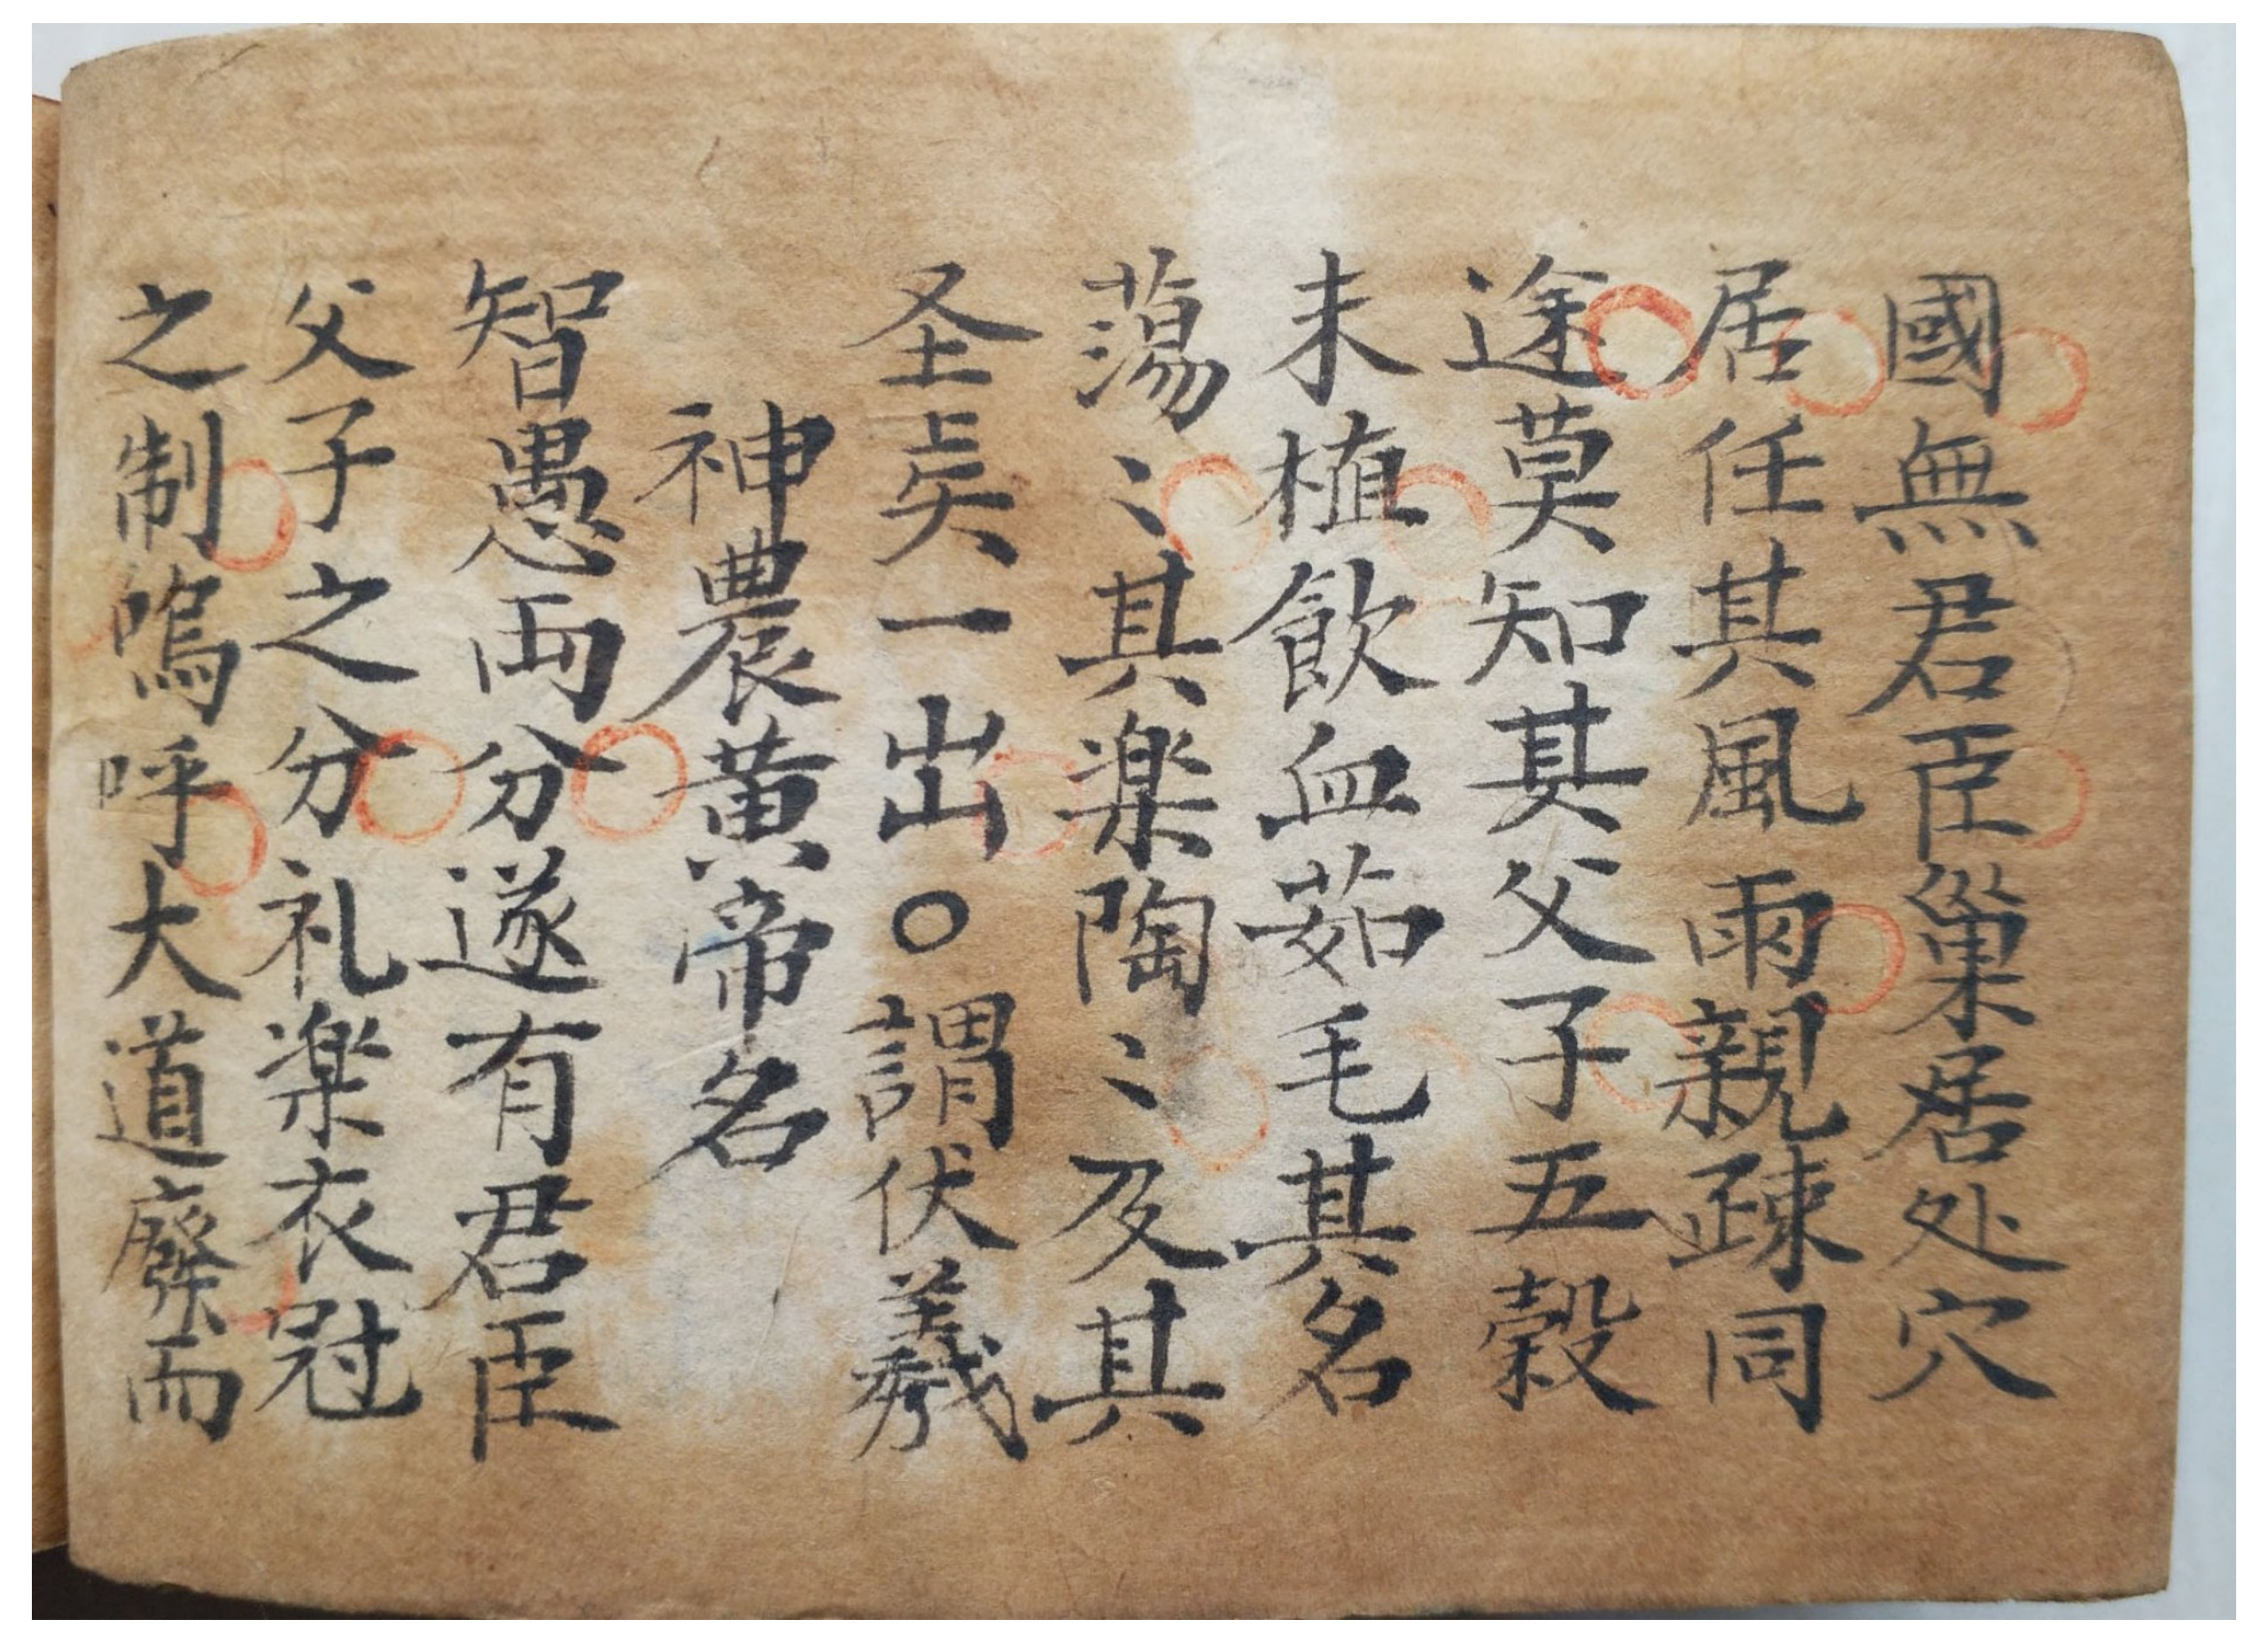 國無君臣巢居处穴
居任其風雨親疎同
途莫知其父子五穀
未植飲血茹毛其名
蕩〻其楽陶〻及其
圣𡗝一出〇謂伏羲
神農黃帝名
智愚両分遂有君臣
父子之分礼楽衣冠
之制嗚呼大道廢而